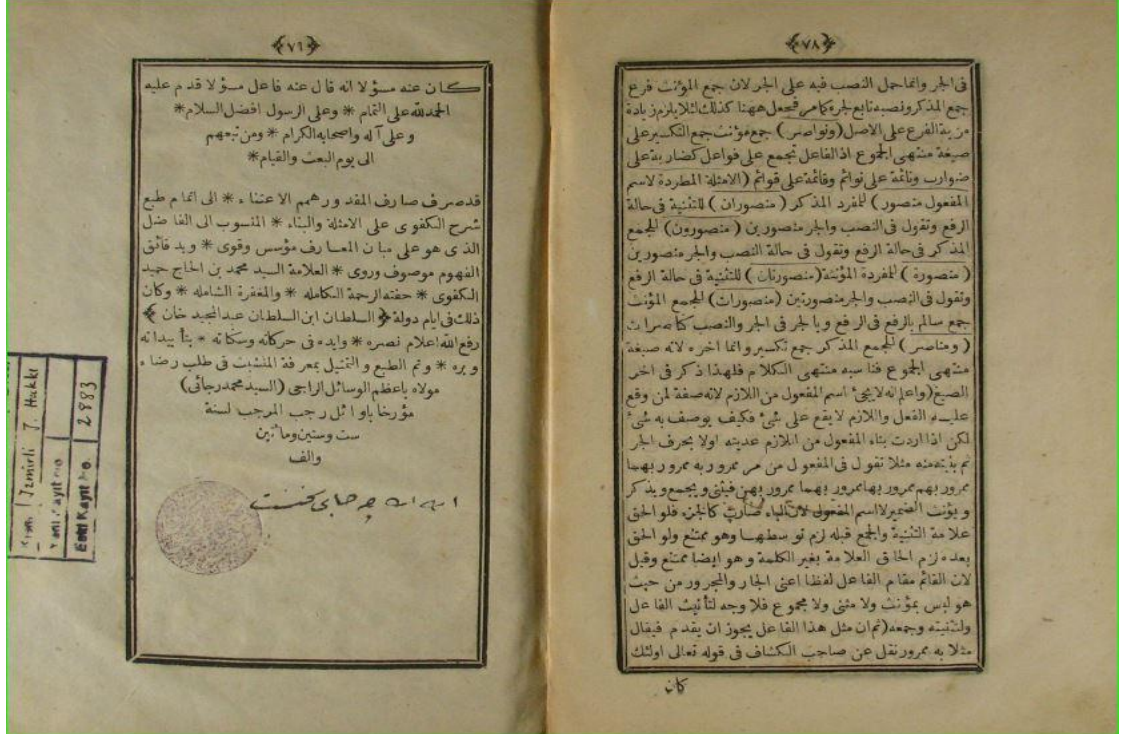 ﴿٧٨﴾
فى الجر وانما حمل النصب فيه على الجر لان جمع المؤنث فرع
جمع المذكر ونصبه تابع لجره كما مر فجعل ههنا كذلك لئلا يلزم زيادة
مزية الفرع على الاصل (ونواصر) جمع مؤنث جمع التكسير على
صيغة منتهى الجموع اذ الفاعل تجمع على فواعل كضاربة على
ضوارب ونائمة على نوائم وقائمة على قوائم (الامثلة المطردة لاسم
المفعول منصور) للمفرد المذكر (منصوران) للتثنية فى حالة
الرفع وتقول فى النصب والجر منصورين (منصورون) للجمع
المذكر فى حالة الرفع وتقول فى حالة النصب والجر منصورين
(منصورة) للمفردة المؤنثة (منصورتان) للتثنية فى حالة الرفع
وتقول فى النصب والجر منصورتين (منصورات) للجمع المؤنث
جمع سالم بالرفع فى الرفع وبالجر فى الجر والنصب كناصرات
(ومناصر) للجمع المذكر جمع تكسير وانما اخره لانه صيغة
منتهى الجموع فناسبه منتهى الكلام فلهذا ذكر فى اخر
الصيغ (واعلم انه لا يجئ اسم المفعول من اللازم لانه صفة لمن وقع
عليه الفعل واللازم لا يقع على شئ فكيف يوصف به شئ
لكن اذا اردت بناء المفعول من اللازم عديته اولا بحرف الجر
ثم بنيته منه مثلا تقول فى المفعول من مر ممرور به ممرور بهما
ممرور بهم ممرور بها ممرور بهما ممرور بهن فيثنى ويجمع ويذكر
ويؤنث الضمير لا اسم المفعول لان الباء صارت كالجزء فلو الحق
علامة التثنية والجمع قبله لزم توسطها وهو ممتنع ولو الحق
بعده لزم الحاق العلامة بغير الكلمة وهو ايضا ممتنع وقيل
لان القائم مقام الفاعل لفظا اعنى الجار والمجرور من حيث
هو ليس بمؤنث ولا مثنى ولا مجموع فلا وجه لتأنيث الفاعل
ولتثنيته وجمعه (ثم ان مثل هذا الفاعل يجوز ان يقدم فيقال
مثلا به ممرور نقل عن صاحب الكشاف فى قوله تعالى اولئك
كان
﴿٧٦﴾
كان عنه مسؤلا انه قال عنه فاعل مسؤلا قدم عليه
الحمد لله على التمام * وعلى الرسول افضل السلام *
وعلى آله واصحابه الكرام * ومن تبعهم
الى يوم البعث والقيام *
قد صرف صارف المقدور همم الاعتناء * الى اتمام طبع
شرح الكفوى على الامثلة والبناء * المنسوب الى الفاضل
الذى هو على مبان المعارف مؤسس وقوى * وبدقائق
الفهوم موصوف وروى * العلامة السيد محمد بن الحاج حميد
الكفوى * حفته الرحمة الكامله * والمغفرة الشامله * وكان
ذلك فى ايام دولة ﴿السلطان ابن السلطان عبد المجيد خان﴾
رفع الله اعلام نصره * وايده فى حركاته وسكناته * بتأييداته
وبره * وتم الطبع والتمثيل بمعرفة المتشبث فى طلب رضاء
مولاه باعظم الوسائل الراجى (السيد محمد رجائى)
مؤرخا باوائل رجب المرجب لسنة
ست وستين ومأتين
والف
Izmirli İ. Hakkı
Yeni Kayıt No.
Eski Kayıt No. 2983